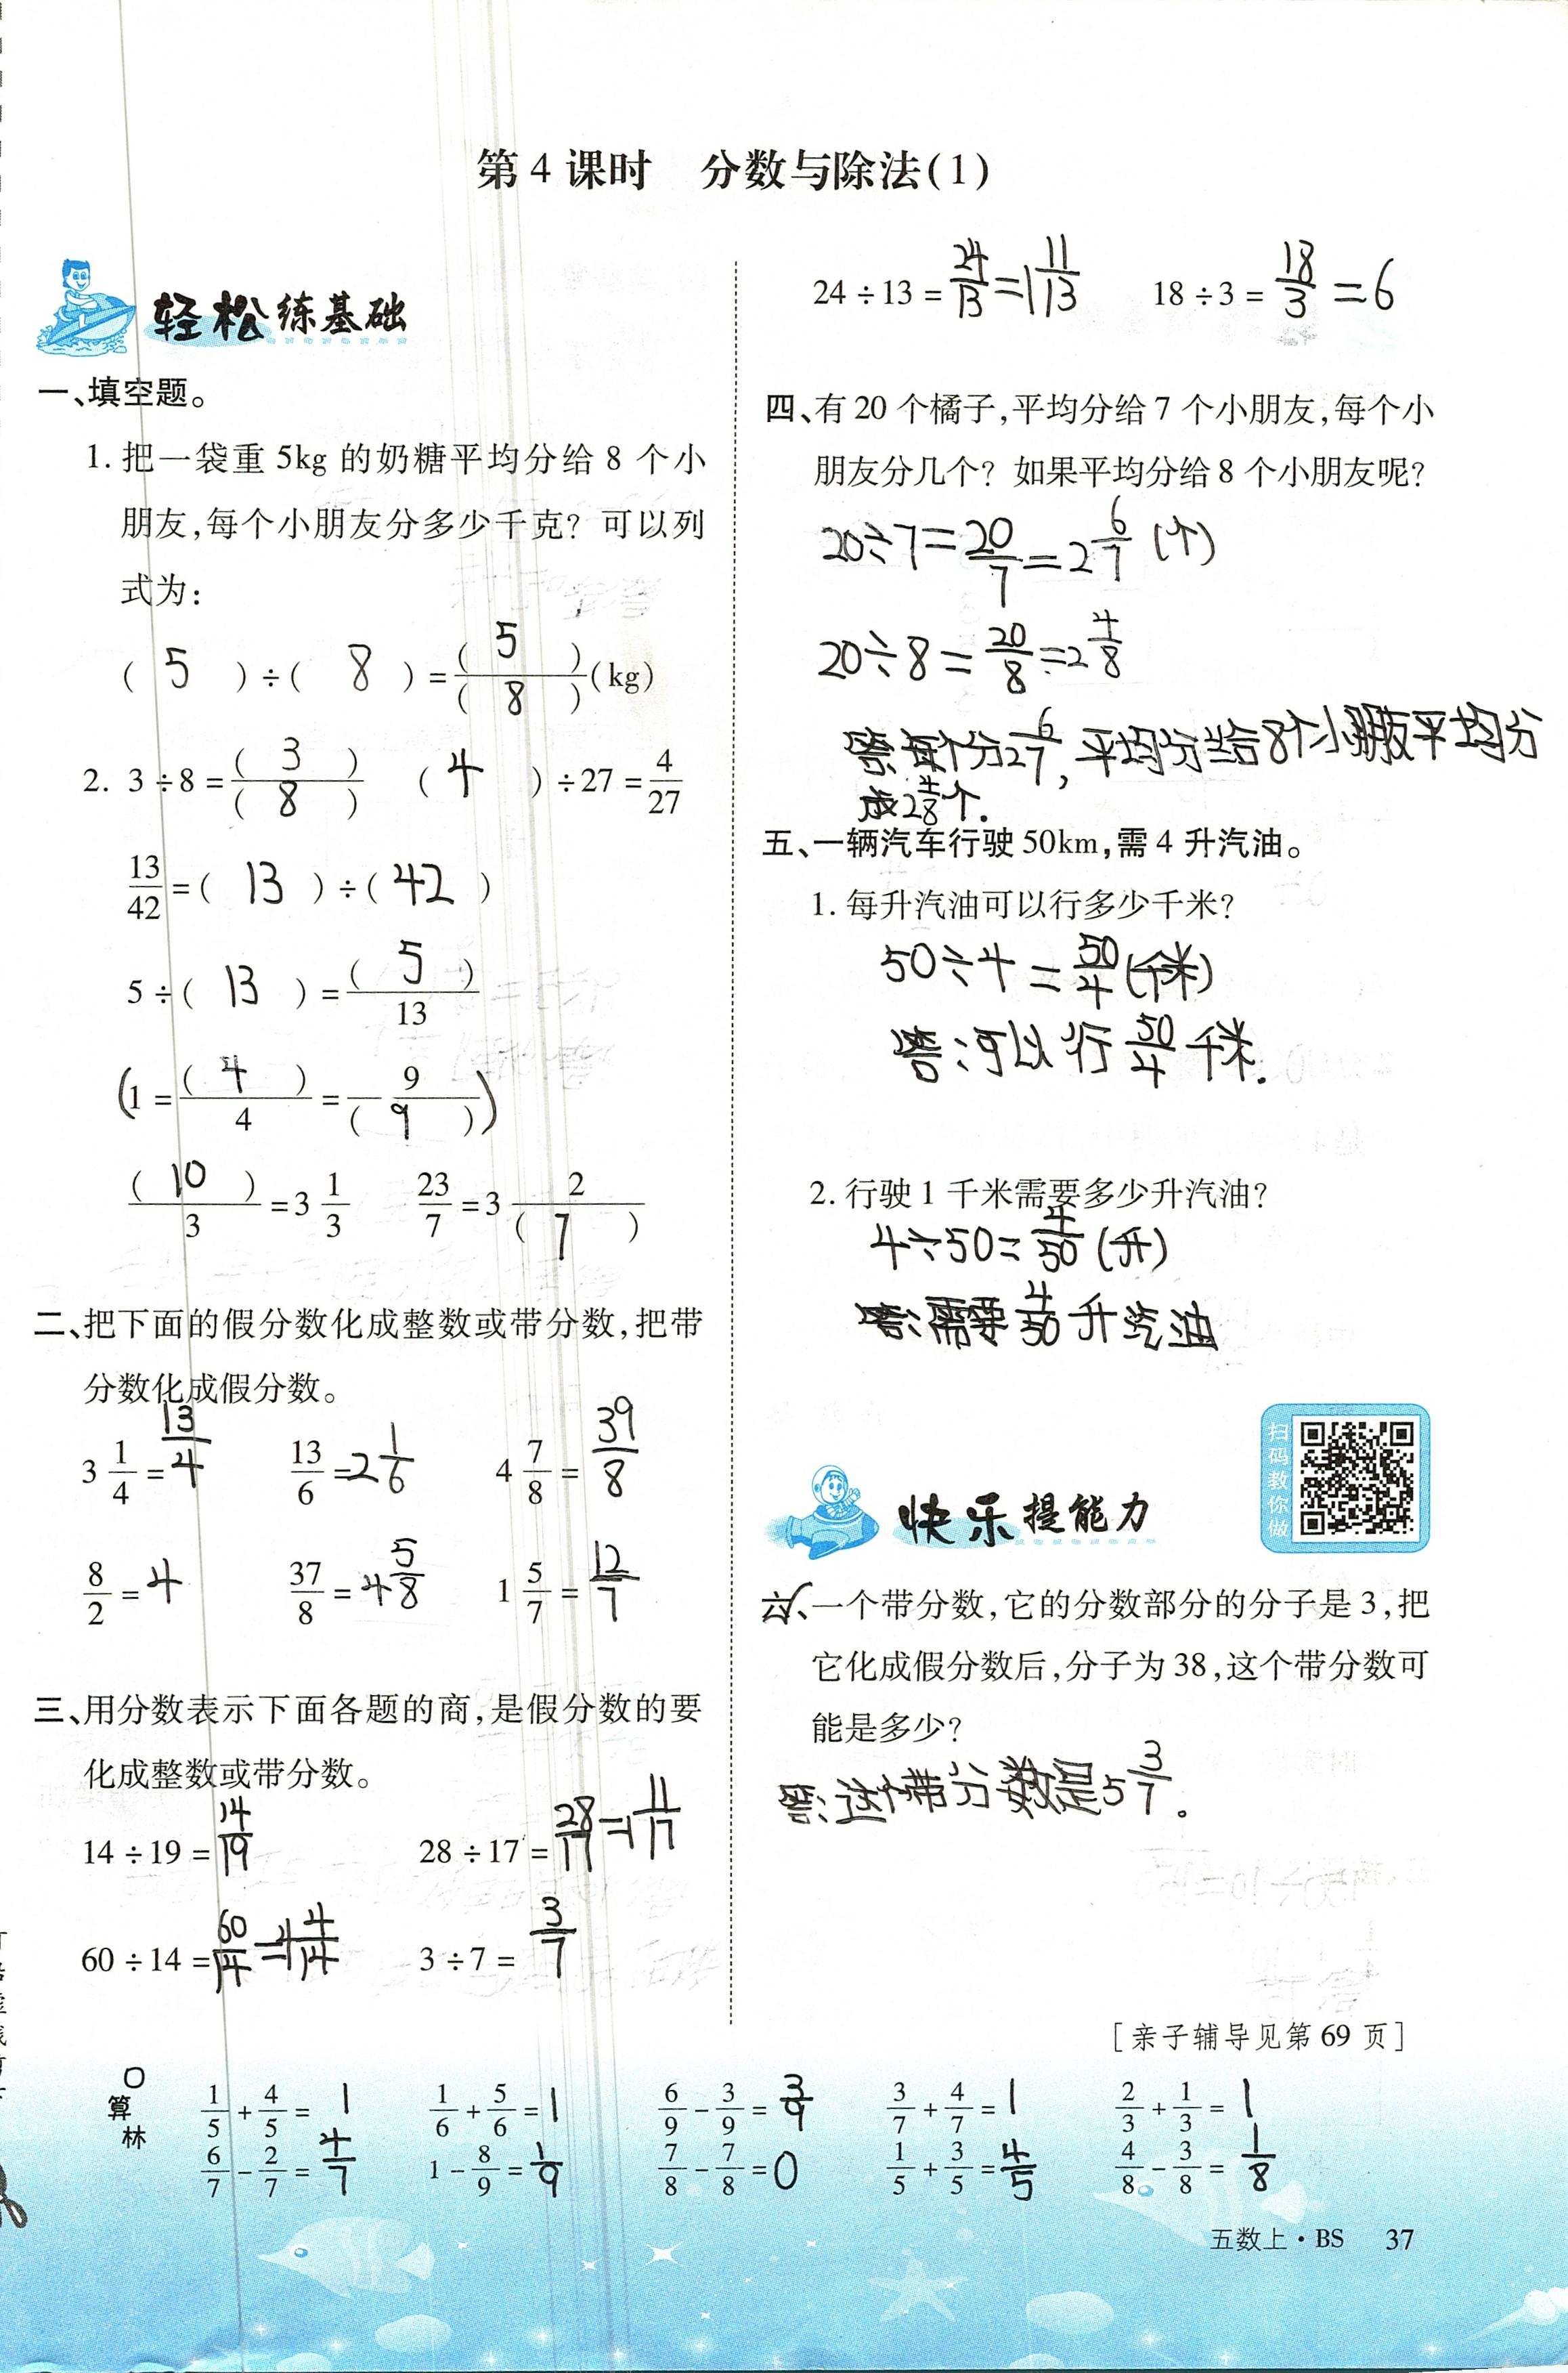 第4课时 分数与除法(1)
轻松练基础
一、填空题。
1. 把一袋重 5kg 的奶糖平均分给 8 个小
朋友,每个小朋友分多少千克? 可以列
式为:
( 5 )÷( 8 )=( 5 )/( 8 )(kg)
2. 3÷8=( 3 )/( 8 ) ( 4 )÷27=4/27
13/42=( 13 )÷( 42 )
5÷( 13 )=( 5 )/13
(1=( 4 )/4=9/( 9 ))
( 10 )/3=3 1/3 23/7=3 2/( 7 )
二、把下面的假分数化成整数或带分数,把带
分数化成假分数。
3 1/4=13/4 13/6=2 1/6 4 7/8=39/8
8/2=4 37/8=4 5/8 1 5/7=12/7
三、用分数表示下面各题的商,是假分数的要
化成整数或带分数。
14÷19=14/19 28÷17=28/17=1 11/17
60÷14=60/14=4 4/14 3÷7=3/7
24÷13=24/13=1 11/13 18÷3=18/3=6
四、有 20 个橘子,平均分给 7 个小朋友,每个小
朋友分几个? 如果平均分给 8 个小朋友呢?
20÷7=20/7=2 6/7 (个)
20÷8=20/8=2 4/8
答:每个分2 6/7,平均分给8个小朋友平均分
成2 4/8个.
五、一辆汽车行驶 50km,需 4 升汽油。
1. 每升汽油可以行多少千米?
50÷4=50/4(千米)
答:可以行50/4千米.
2. 行驶 1 千米需要多少升汽油?
4÷50=4/50(升)
答:需要4/50升汽油
快乐提能力
扫码教你做
六、一个带分数,它的分数部分的分子是 3,把
它化成假分数后,分子为 38,这个带分数可
能是多少?
答:这个带分数是5 3/7。
[亲子辅导见第 69 页]
算
林
1/5+4/5=1 1/6+5/6=1 6/9-3/9=3/9 3/7+4/7=1 2/3+1/3=1
6/7-2/7=4/7 1-8/9=1/9 7/8-7/8=0 1/5+3/5=4/5 4/8-3/8=1/8
五数上·BS 37